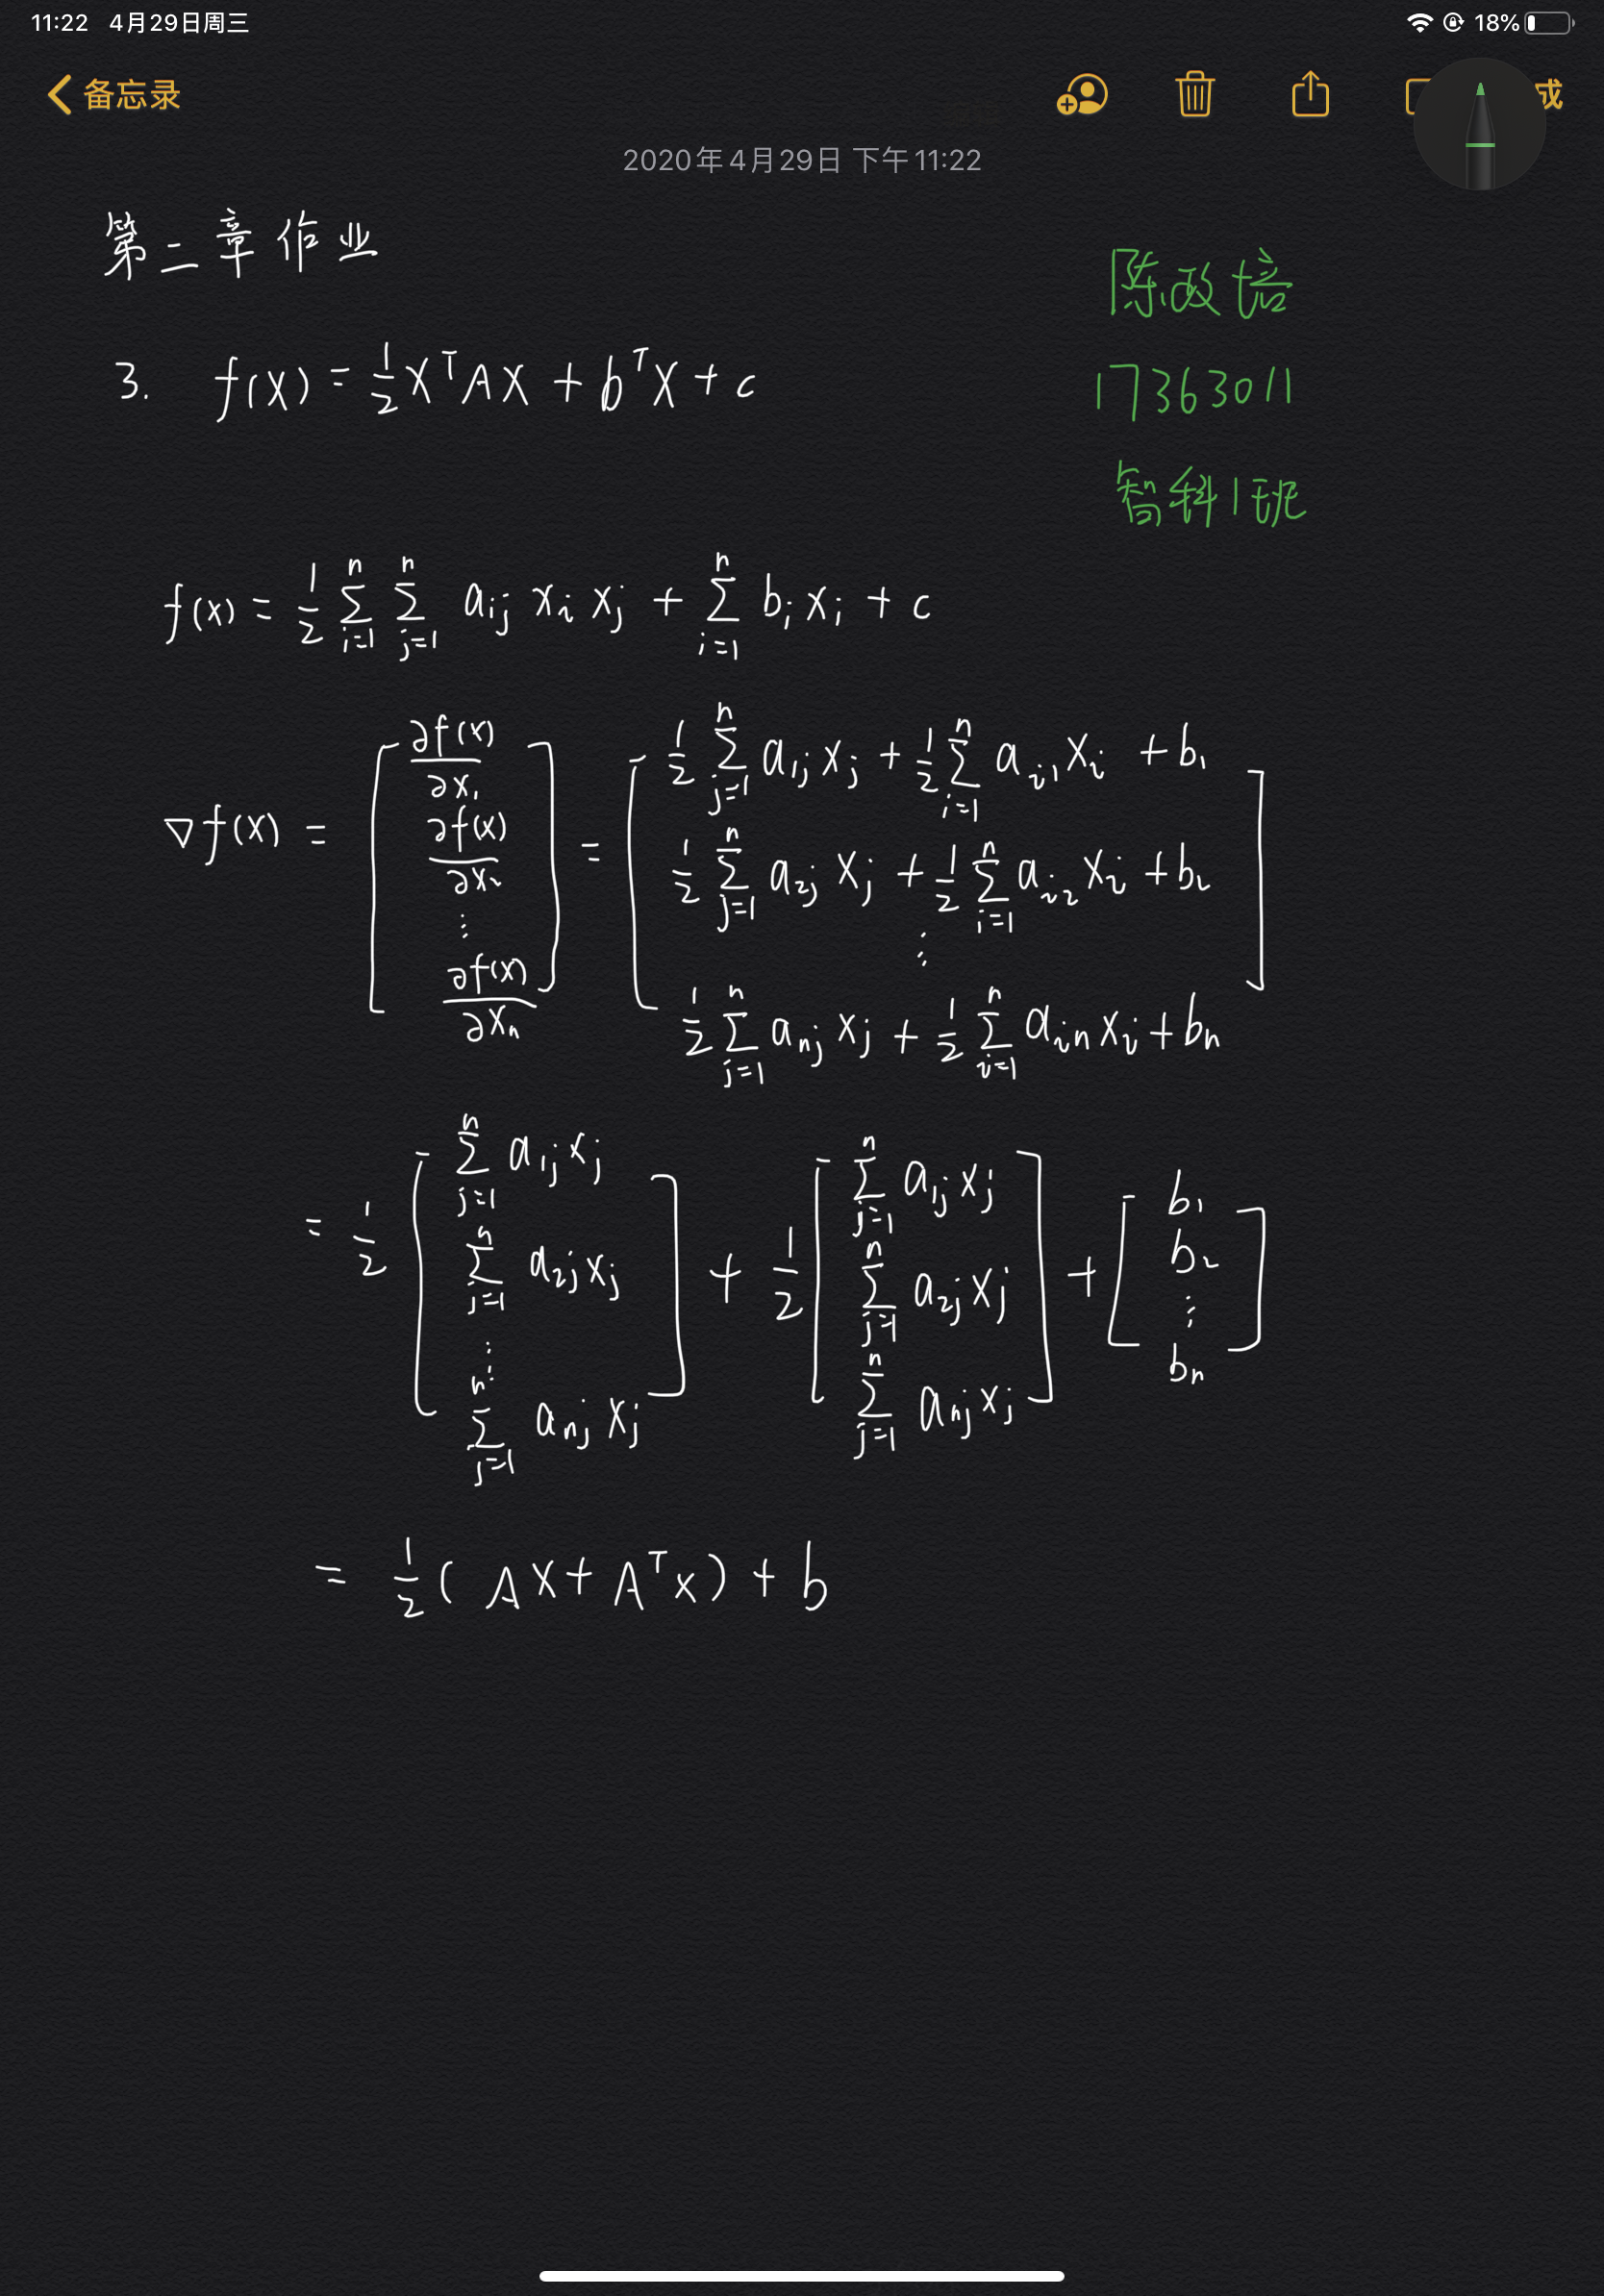 11:22 4月29日周三 18%
备忘录 成
2020年4月29日 下午11:22
第二章作业
陈政培
3. f(X) = ½XᵀAX + bᵀX + c
17363011
智科1班
f(x) = ½ ∑_{i=1}^{n} ∑_{j=1}^{n} a_{ij} x_i x_j + ∑_{i=1}^{n} b_i x_i + c
∇f(x) = [∂f(x)/∂x_1 ∂f(x)/∂x_2 ⋮ ∂f(x)/∂x_n] = [½ ∑_{j=1}^{n} a_{1j} x_j + ½ ∑_{i=1}^{n} a_{i1} x_i + b_1
½ ∑_{j=1}^{n} a_{2j} x_j + ½ ∑_{i=1}^{n} a_{i2} x_i + b_2
⋮
½ ∑_{j=1}^{n} a_{nj} x_j + ½ ∑_{i=1}^{n} a_{in} x_i + b_n]
= ½ [∑_{j=1}^{n} a_{1j} x_j ∑_{j=1}^{n} a_{2j} x_j ⋮ ∑_{j=1}^{n} a_{nj} x_j] + ½ [∑_{j=1}^{n} a_{1j} x_j ∑_{j=1}^{n} a_{2j} x_j ∑_{j=1}^{n} a_{nj} x_j] + [b_1 b_2 ⋮ b_n]
= ½(AX + Aᵀx) + b